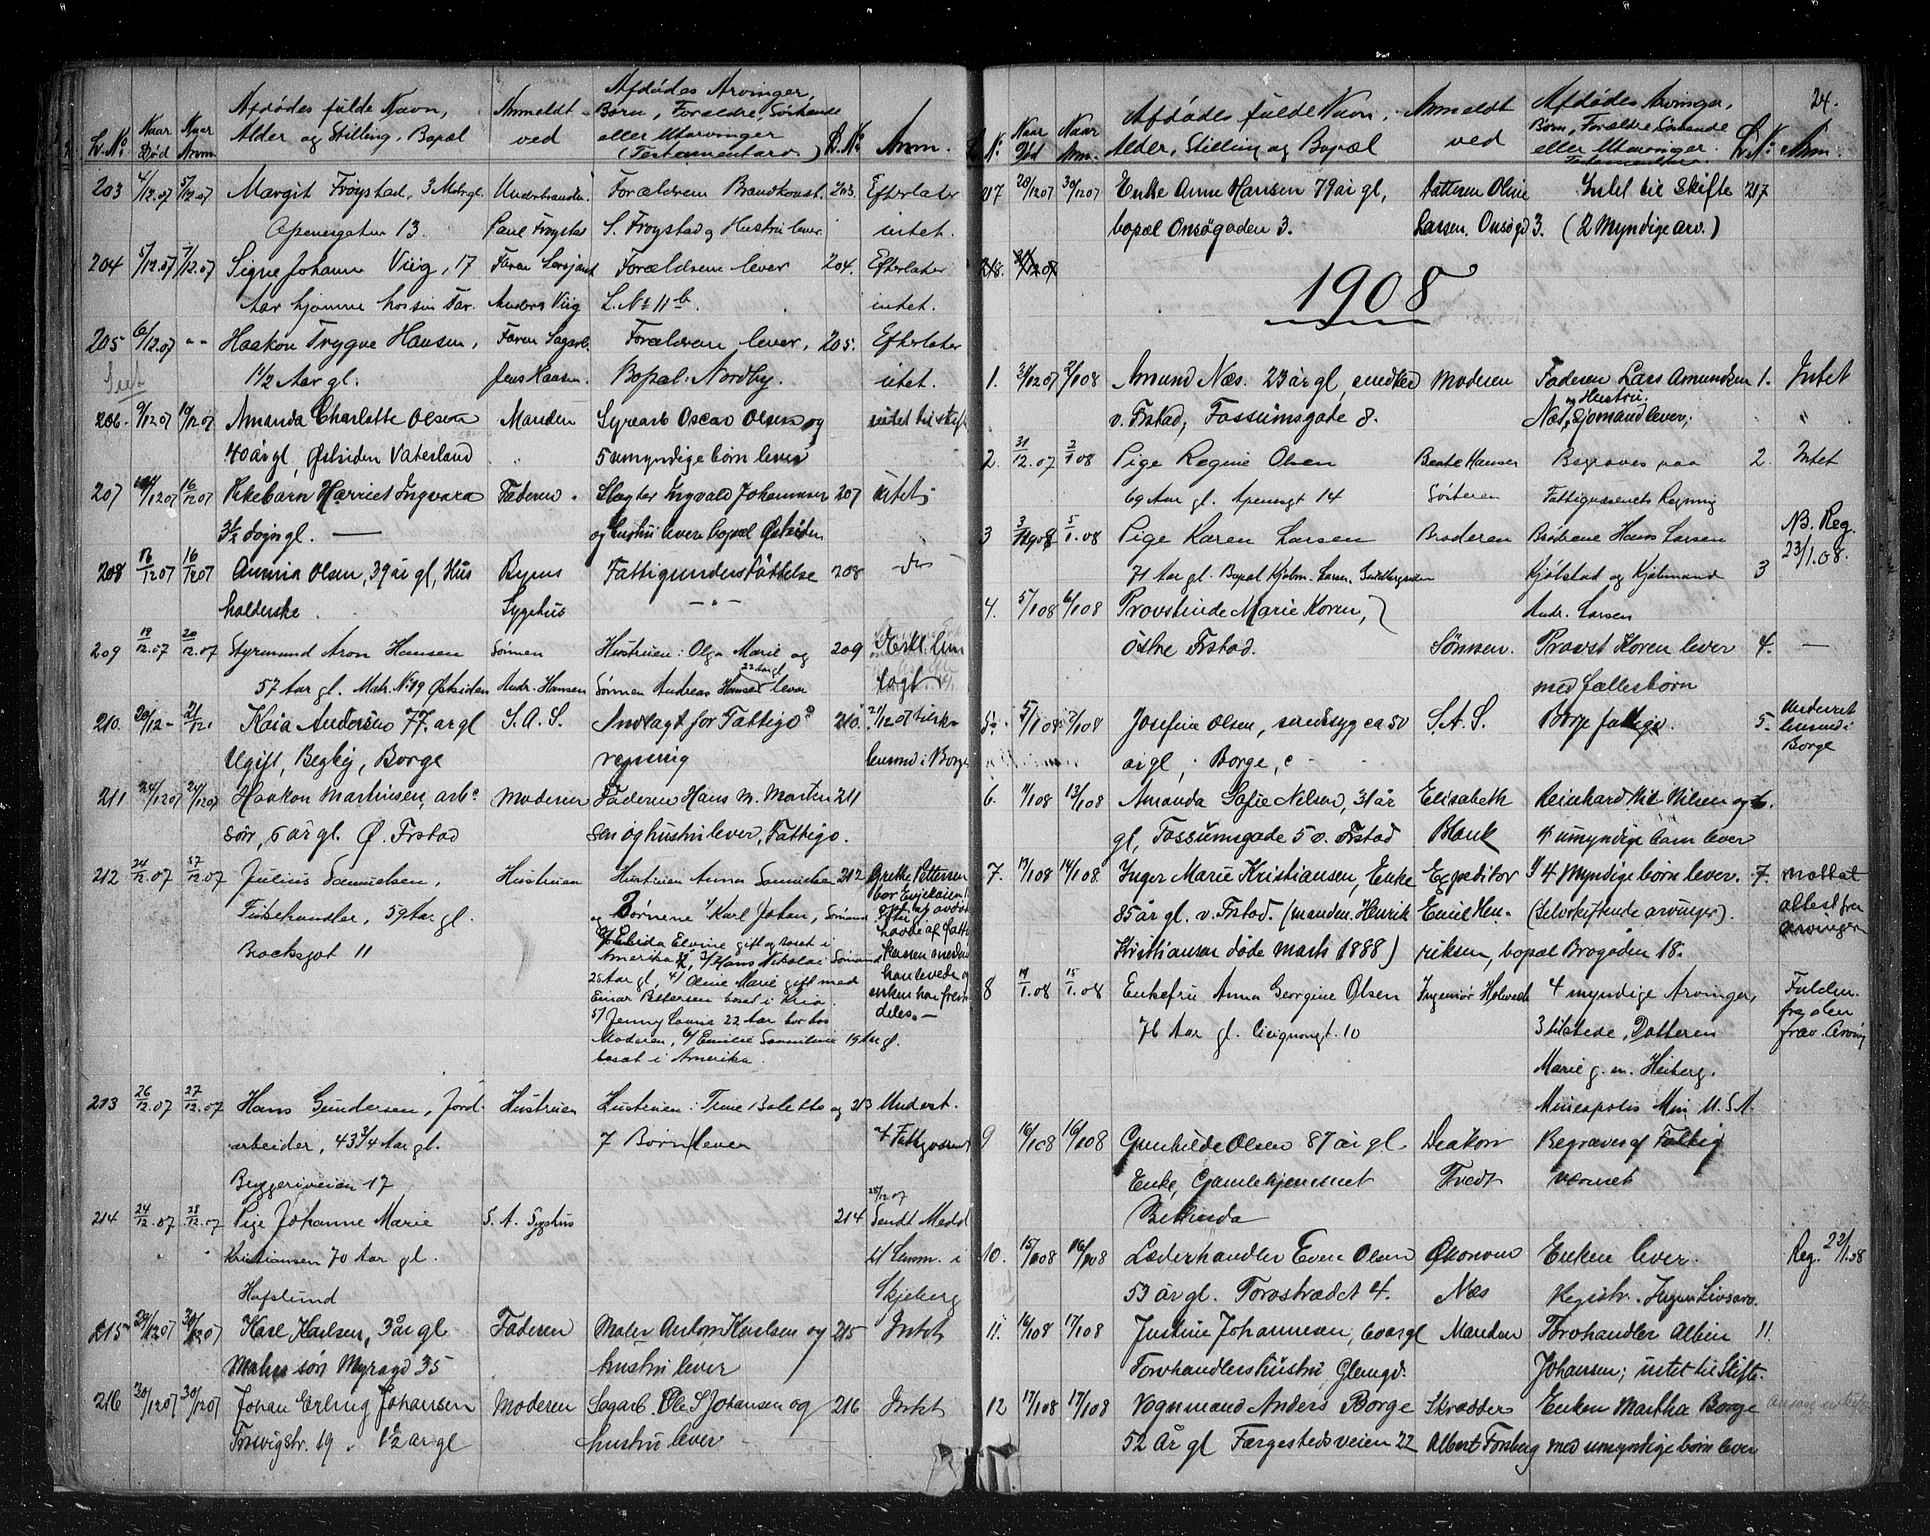 Afdødes fulde Navn, Alder og Stilling, Bopæl
Anmeldt ved
Afdødes Arvinger, Børn, Forældre, Søskende eller Utarvinger (Testamentarv)
L. No Naar Død Naar Anm.
L. No Anm.
203 4/12.07 5/12.07 Margit Frøystad, 3 Mdr gl. Underbrandm. Forældrene Brandkonst. 203. Efterlater
Apenesgaten 13. Paul Frøystad S. Frøystad og Hustru lever intet.
204 5/12.07 7/12.07 Signe Johanne Viig, 17 Faren Forældrene lever 204. Efterlater
Aar hjemme hos sin Far. Anders Viig L. No 11 b. intet.
205 6/12.07 " " Haakon Trygve Hansen, Faren Sagarb. Forældrene lever, 205. Efterlater
1 1/2 Aar gl. Jens Hansen. Bopæl: Nordby. intet.
206. 9/12 07 10/12 07 Amanda Charlotte Olsen Manden Gyrearb Oscar Olsen og intet til skift
40 år gl, Østsiden Vaterland 5 umyndige børn lever
207 14/12 07 16/12 07 Pikebarn Harriet Ingvara Faderen Slagter Ingvald Johannesen 207 intet
3 1/2 døgn gl. — og hustru lever bopæl Østsiden
208 16/12 07 16/12 07 Annna Olsen, 39 år gl, Hus Byens Fattigunderstøttelse 208 do
holderske Sygehus - " -
209 19/12.07 20/12.07 Styrmand Aron Hansen Sønnen Hustruen: Olga Marie og 209
57 Aar gl. Matr. No 19 Østsiden Andr. Hansen Sønnen Andreas Hansen 22 Aar gl lever
210. 20/12 - 21/12 Kaia Andersen 77. ar gl S. A. S. Indlagt for Fattigv. 210. 21/12 07
Ugift, Begby, Borge regning lensmd i Borge
211 24/12 07 24/12 07 Haakon Martinsen, arb. Moderen Faderen Hans M. Martin 211
søn, 6 år gl. Ø. Frstad sen og hustru lever, Fattigv.
212 24/12.07 27/12.07 Julius Samuelsen, Hustruen Hustruen Anna Samuelsen 212 Grethe Pettersen
Fiskehandler, 59 Aar gl. og Børnene 1/ Karl Johan, Sømand
Brocksgt 11 2/ Elida Elvine gift og bosat i
Amerika 3/ Hans Nikolai Sømand
25 Aar gl, 4/ Oline Marie gift med
Einar Pettersen bosat i Kria
5/ Jenny Lovise 22 Aar bor hos
Moderen, 6/ Emilie Samueline 19 Aar gl.
bosat i Amerika.
213 26/12.07 27/12.07 Hans Gundersen, Jord- Hustruen Hustruen: Trine Bolette og 213 Underst.
arbeider, 43 3/4 Aar gl. 7 Børn lever af Fattigvæsenet
Bryggeriveien 17
214 24/12.07 28/12.07 Pige Johanne Marie S. A. Sygehus 214 28/12 07 Sendt Medd
Kristiansen 70 Aar gl. til Lensm. i
Hafslund Skjeberg
215 29/12 07 30/12 07 Karl Karlsen, 3 år gl Faderen Maler Anton Karlsen og 215 Intet
Malers søn Myragd 35 hustru lever
216 30/12 07 30/12 07 Johan Erling Johansen Moderen Sagarb. Ole S Johansen og 216 Intet
Trosvigstr. 19. 1 1/2 år gl hustru lever
24.
L. No Naar Død Naar Anm. Afdødes fulde Navn, Alder, Stilling og Bopæl
Anmeldt ved
Afdødes Arvinger, Børn, Forældre Søskende eller Utarvinger. Testamentarv
L. No Anm.
217 28/12 07 30/12 07 Enke Anne Hansen 79 år gl, Datteren Oline Intet til Skifte 217
bopæl Onsøgaden 3. Larsen. Onsøgd 3. (2 Myndige arv.)
218. 31/12 07
1908
1. 31/12 07 2/1 08 Amund Næs. 23 år gl, snedker Moderen Faderen Lars Amundsen 1. Intet
v. Frstad, Fossumsgade 8. og Hustru. Næs, Sjømand lever, "
2. 31/12.07 2/1 08 Pige Regine Olsen Beate Hansen Begraves paa 2. Intet
69 Aar gl. Apenesgt 14 Søsteren Fattigvæsenets Regning
3 3/1 908 5/1.08 Pige Karen Larsen Broderen Brødrene Hans Larsen NB. Reg. 23/1.08.
71 Aar gl. Bopæl Kjøbm. Larsen. Kjølstad og Kjøbmand 3
4. 5/1 08 6/1 08 Provstinde Marie Koren, Andr. Larsen
østre Frstad. Sønnen. Provst Koren lever 4. —
med fællesbørn
5. 5/1 08 7/1 08 Josefine Olsen, sindssyg ca 50 S. A. S. Borge fattigv. 5. Underret lensmd i Borge
år gl, Borge,
6. 11/1 08 13/1 08 Amanda Sofie Nelsen, 31 år Elisabeth Reinhard Nilsen og 6.
gl, Fossumsgade 5 v. Frstad Blank 4 umyndige barn lever
7. 13/1 08 14/1 08. Inger Marie Kristiansen, Enke Expeditør 4 Myndige børn lever. 7. Mottat
85 år gl. v. Frstad. (manden. Henrik Emil Hen- (Selvskiftende arvinger). attest fra
Kristiansen døde marts 1888) riksen, bopæl Brogaden 18. arvingen
8 14/1.08 15/1.08 Enkefru Anna Georgine Olsen Ingeniør 4 myndige Arvinger,
76 Aar gl. Civiqvarsgt. 10 3 tilstede, Datteren
Marie g. m. Heiberg.
Mineapolis Min U. S. A.
9 16/1 08 16/1 08 Gunhilde Olsen 87 år gl Deakon Begraves af Fattig
Enke, Gamlehjemmet Tvedt væsenet
Betinda
10. 15/1 08 16/1 08 Læderhandler Even Olsen Økonom Enken lever. Reg. 22/1.08
53 år gl. Torvstrædet 4. Næs Registr. Ingen Livsarv.
11. 16/1 08 17/1 08 Justine Johannesen, år gl Manden Torvhandler Albin 11.
Torvhandlers hustru Glemgd. Johansen; intet til Skifte.
12 17/1 08 17/1 08 Vognmand Anders Borge Skrædder Enken Martha Borge
52 År gl Færgestedsveien 22 Albert Forsberg med umyndige børn lever